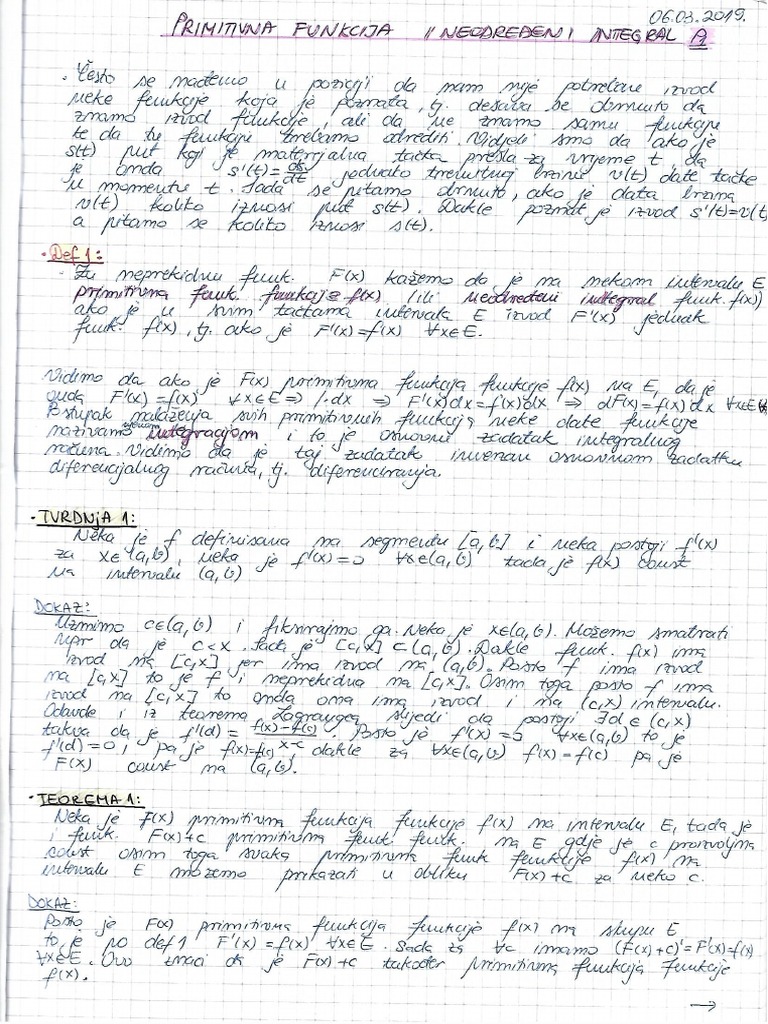 06.03.2019.
PRIMITIVNA FUNKCIJA I NEODREĐENI INTEGRAL
· Često se nađemo u poziciji da nam nije potreban izvod
neke funkcije koja je poznata, tj. dešava se obrnuto da
znamo izvod funkcije, ali da ne znamo samu funkciju
te da tu funkciju trebamo odrediti. Vidjeli smo da ako je
s(t) put koji je materijalna tačka prešla za vrijeme t, da
je onda s'(t)=ds/dt jednako trenutnoj brzini v(t) date tačke
u momentu t. Sada se pitamo obrnuto, ako je data brzina
v(t) koliko iznosi put s(t). Dakle poznat je izvod s'(t)=v(t)
a pitamo se koliko iznosi s(t).
· Def 1:
· Za neprekidnu funk. F(x) kažemo da je na nekom intervalu E
primitivna funk. funkcije f(x) (ili neodređeni integral funk. f(x))
ako je u svim tačkama intervala E izvod F'(x) jednak
funk. f(x), tj. ako je F'(x)=f(x) ∀x∈E.
Vidimo da ako je F(x) primitivna funkcija funkcije f(x) na E, da je
onda F'(x)=f(x) ∀x∈E ⇒ /·dx ⇒ F'(x)dx=f(x)dx ⇒ dF(x)=f(x)dx ∀x∈E
Postupak nalaženja svih primitivnih funkcija neke date funkcije
nazivamo integracijom i to je osnovni zadatak integralnog
računa. Vidimo da je taj zadatak inverzan osnovnom zadatku
diferencijalnog računa, tj. diferenciranja.
· TVRDNJA 1:
Neka je f definisana na segmentu [a,b] i neka postoji f'(x)
za x∈(a,b), neka je f'(x)=0 ∀x∈(a,b) tada je f(x) const
na intervalu (a,b)
DOKAZ:
Uzmimo c∈(a,b) i fiksirajmo ga. Neka je x∈(a,b). Možemo smatrati
npr da je c<x. Sada je [c,x]⊂(a,b). Dakle funk. f(x) ima
izvod na [c,x] jer ima izvod na (a,b). Pošto f ima izvod
na [c,x] to je f i neprekidna na [c,x]. Osim toga pošto f ima
izvod na [c,x] to onda ona ima izvod i na (c,x) intervalu.
Odavde i iz teorema Lagrangea slijedi da postoji ∃d∈(c,x)
takva da je f'(d)= f(x)-f(c)/x-c. Pošto je f'(x)=0 ∀x∈(a,b) to je
f'(d)=0, pa je f(x)=f(c) dakle za ∀x∈(a,b) f'(x)=f(c) pa je
F(x) const na (a,b).
· TEOREMA 1:
Neka je F(x) primitivna funkcija funkcije f(x) na intervalu E, tada je
i funk. F(x)+c primitivna funk funk. na E gdje je c proizvoljna
const osim toga svaku primitivnu funk funkcije f(x) na
intervalu E možemo prikazati u obliku F(x)+c za neko c.
DOKAZ:
Pošto je F(x) primitivna funkcija funkcije f(x) na skupu E
to je po def 1 F'(x)=f(x) ∀x∈E. Sada za ∀c imamo (F(x)+c)'=F'(x)=f(x)
∀x∈E. Ovo znači da je F(x)+c također primitivna funkcija funkcije
f(x).
→